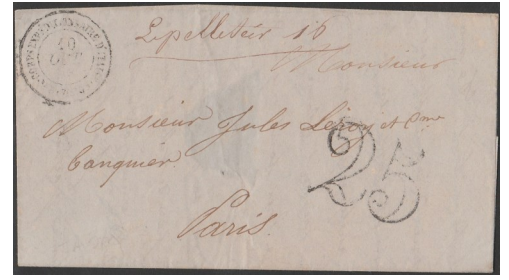 Lepelletier 16
Monsieur
Monsieur Jules Leroy et Cnie
banquier
Paris.
25